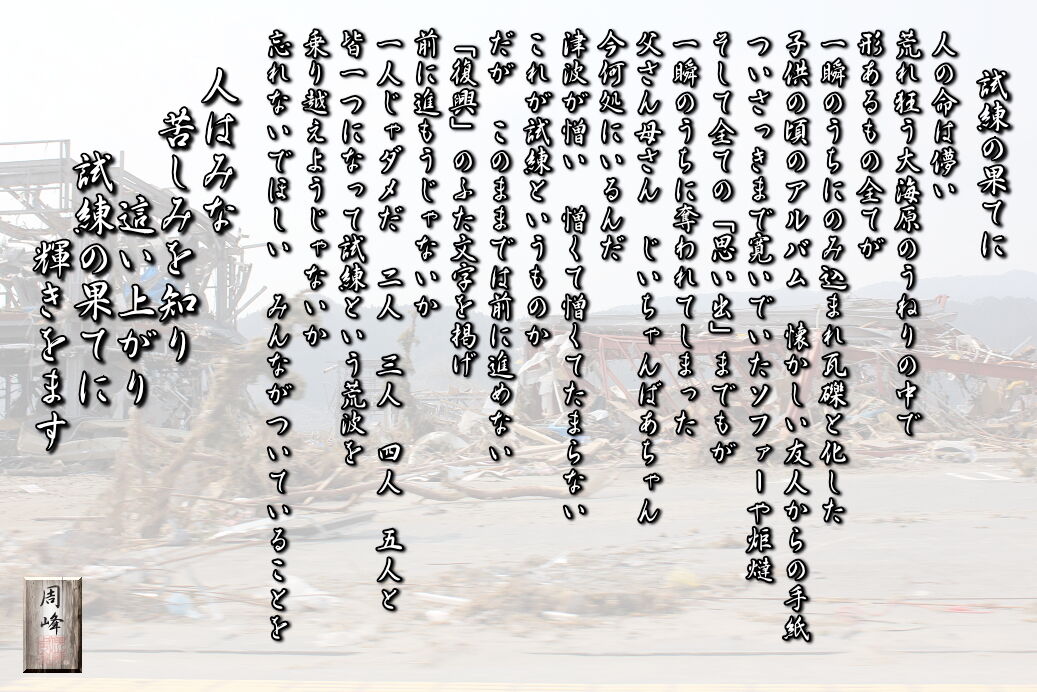 試練の果てに
人の命は儚い
荒れ狂う大海原のうねりの中で
形あるもの全てが
一瞬のうちにのみ込まれ瓦礫と化した
子供の頃のアルバム　懐かしい友人からの手紙
ついさっきまで寛いでいたソファーや炬燵
そして全ての「思い出」までもが
一瞬のうちに奪われてしまった
父さん母さん　じいちゃんばあちゃん
今何処にいるんだ
津波が憎い　憎くて憎くてたまらない
これが試練というものか
だが　このままでは前に進めない
「復興」のふた文字を掲げ
前に進もうじゃないか
一人じゃダメだ　二人　三人　四人　五人と
皆一つになって試練という荒波を
乗り越えようじゃないか
忘れないでほしい　みんながついていることを
人はみな
苦しみを知り
這い上がり
試練の果てに
輝きをます
周峰